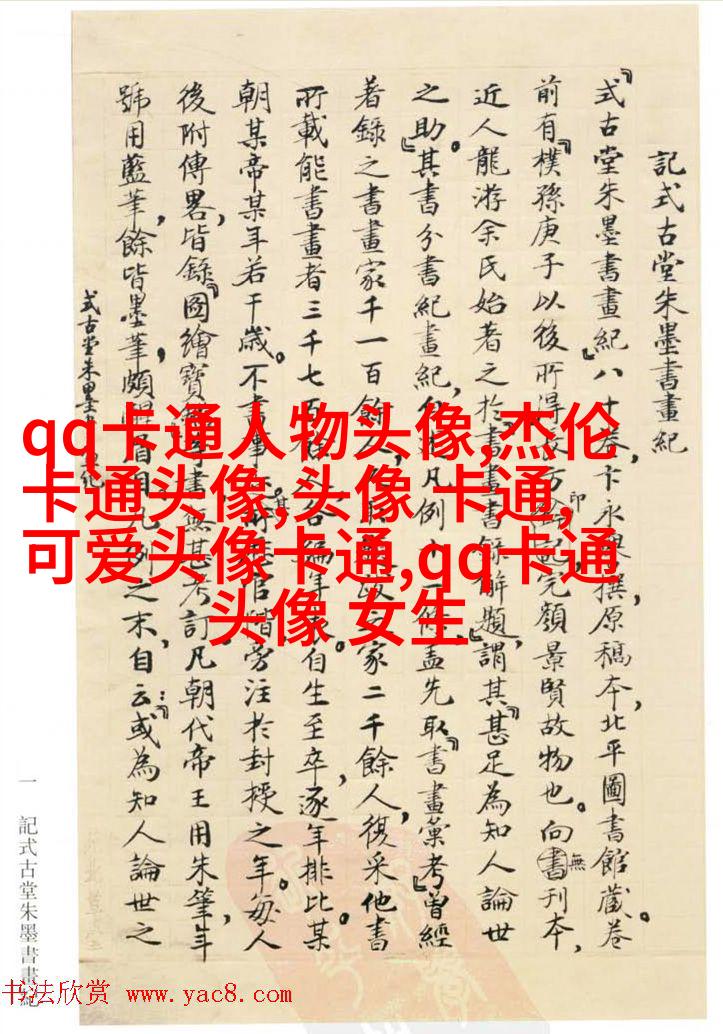 記式古堂朱墨書畫紀
『式古堂朱墨書畫紀』八十卷，卞永撰，原稿本，北平圖書館藏。卷
前有『樸孫庚子以後所得印完顏景賢故物也。向無書刊本，
近人龍游余氏始著之於『書畫書錄解題』，謂其『甚足為知人論世
之助』。其書分書紀畫紀，凡例十一條，蓋先取『書畫彙考』曾經
著錄之書畫家千一百餘人，家二千餘人，復采他書
所載能書畫者三千七百各編年表。自生至卒，逐年排比某
朝某帝某年若干歲。不書事其旁注於封授之年。每人
後附傳畧，皆錄『圖繪寶等書無甚考訂凡朝代帝王用朱筆，年
號用藍筆，餘皆墨筆，頗眉目凡例之末，自云：『或為知人論世之
式古堂朱墨書紀
一 記式古堂朱墨書畫紀
qq卡通人物头像,杰伦
卡通头像,头像 卡通,
可爱头像卡通,qq卡通
头像 女生
书法欣赏 www.yac8.com